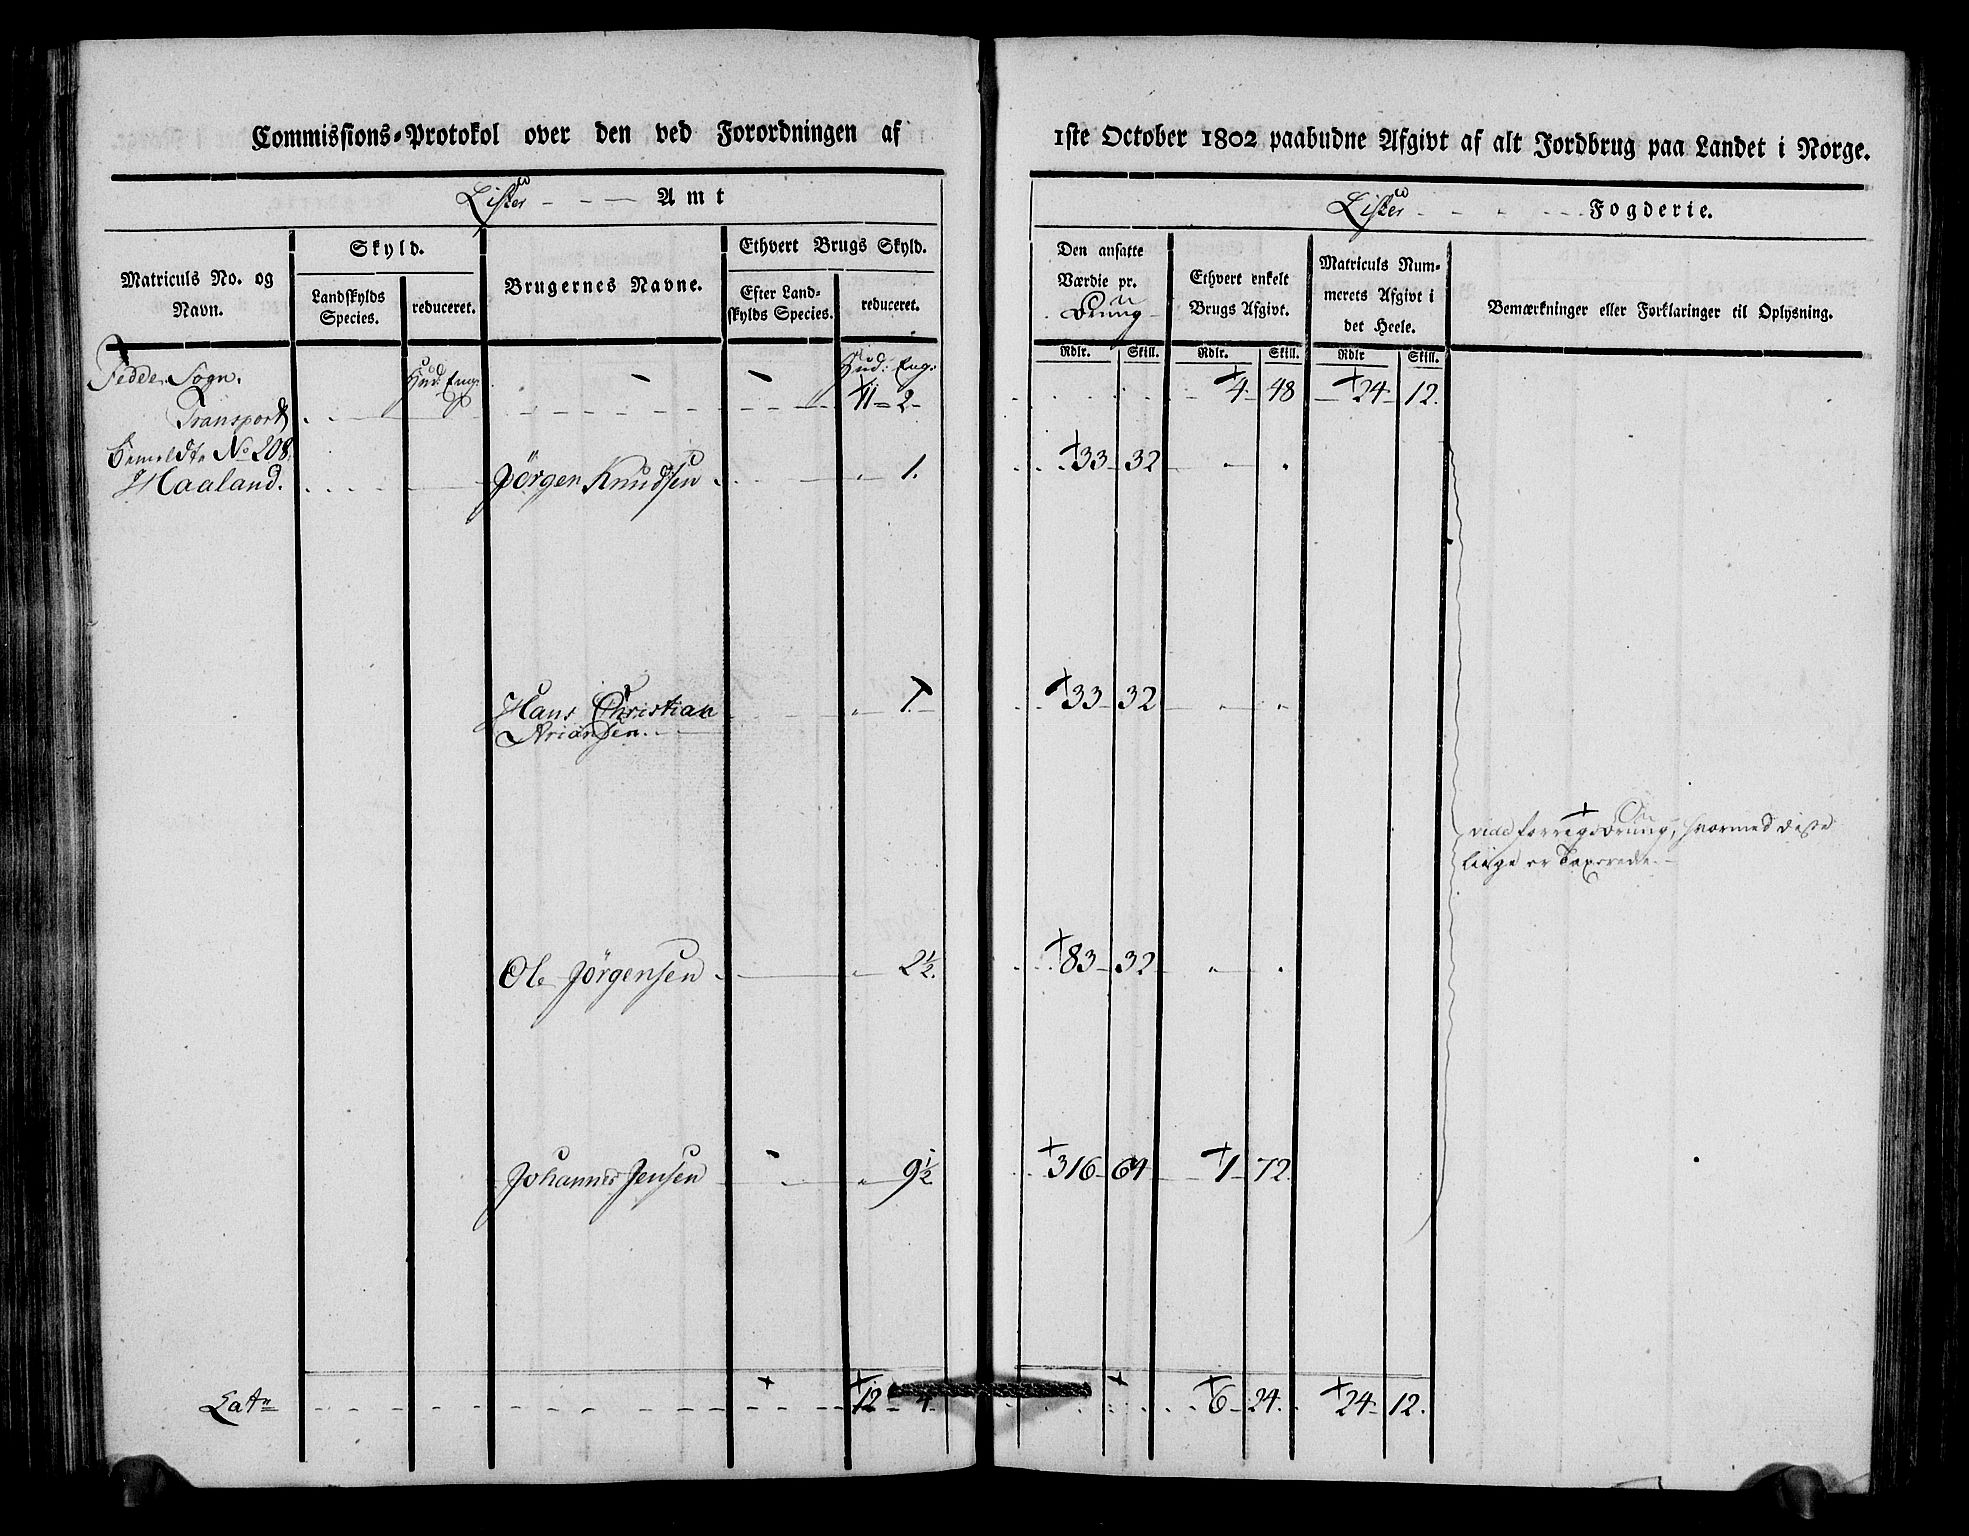 Commissions-Protokol over den ved Forordningen af
Lister - - - Amt
Matriculs No. og Navn.
Skyld.
Landskylds Species.
reduceret.
Brugernes Navne.
Ethvert Brugs Skyld.
Efter Landskylds Species.
reduceret.
Fedde Sogn.
Hud. Eng.
Hud. Eng.
Transport
11 - 2 -
Bemeldte No 208.
Haaland.
Jörgen Knudsen
1.
Hans Christian
Ariansen.
1.
Ole Jörgensen
2½.
Johannes Jensen
9½
Lats
12 - 4.
1ste October 1802 paabudne Afgivt af alt Jordbrug paa Landet i Norge.
Lister - - - Fogderie.
Den ansatte
Værdie pr.
Ethvert enkelt
Brugs Afgivt.
Matriculs Num-
merets Afgivt i
det Heele.
Bemærkninger eller Forklaringer til Oplysning.
Rdlr. Skill. Rdlr. Skill. Rdlr Skill.
4. 48 24 12.
33 32
33 32
vide forregivning, hvormed disse
liige er Taxerede.
83 32
316 64 1 72.
6 24. 24 12.